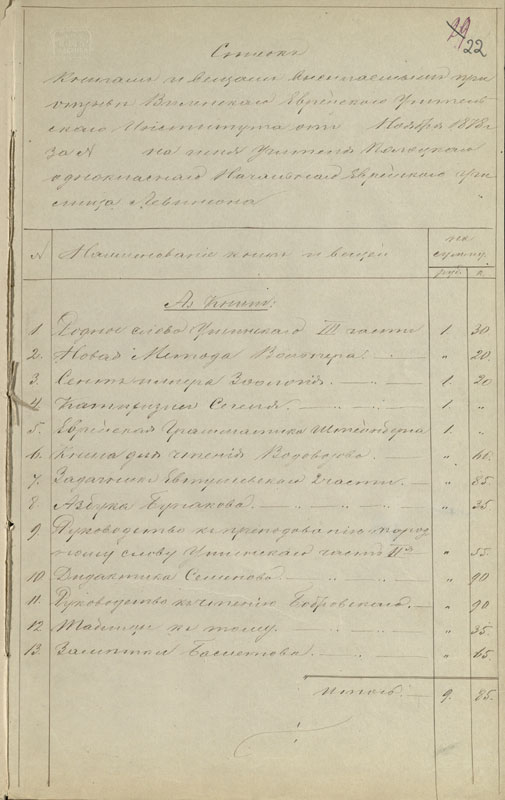 19 22
Списокъ
Книгамъ и вещамъ высылаемымъ при
отзывѣ Виленскаго Еврейскаго Учитель-
скаго Института отъ Ноября 1878 г
за № на имя Учителя Полоцкаго
однокласснаго Начальнаго Еврейскаго Учи-
лища Левинсона
№ Наименованіе книгъ и вещей на сумму.
руб. к.
А) Книги:
1. Родное слово Ушинскаго III части 1. 30
2. Новая Метода 〃 20.
3. Зоологія. 1. 20
4 Катихизисъ 1. 〃
5. Еврейская Грамматика Штейнберга 1. 〃
6. Книга для чтенія Водовозова 〃 60.
7. Задачникъ Евтушевскаго 2 части. 〃 85
8. Азбука Бунакова. 〃 35
9. Руководство къ преподаванію по род-
ному слову Ушинскаго часть IIя 〃 55
10. Дидактика Семенова. 〃 90
11. Руководство къ чтенію Бобровскаго. 〃 90
12. Таблицы къ тому. 〃 35.
13. Замѣтки 〃 65.
Итого: 9. 85.